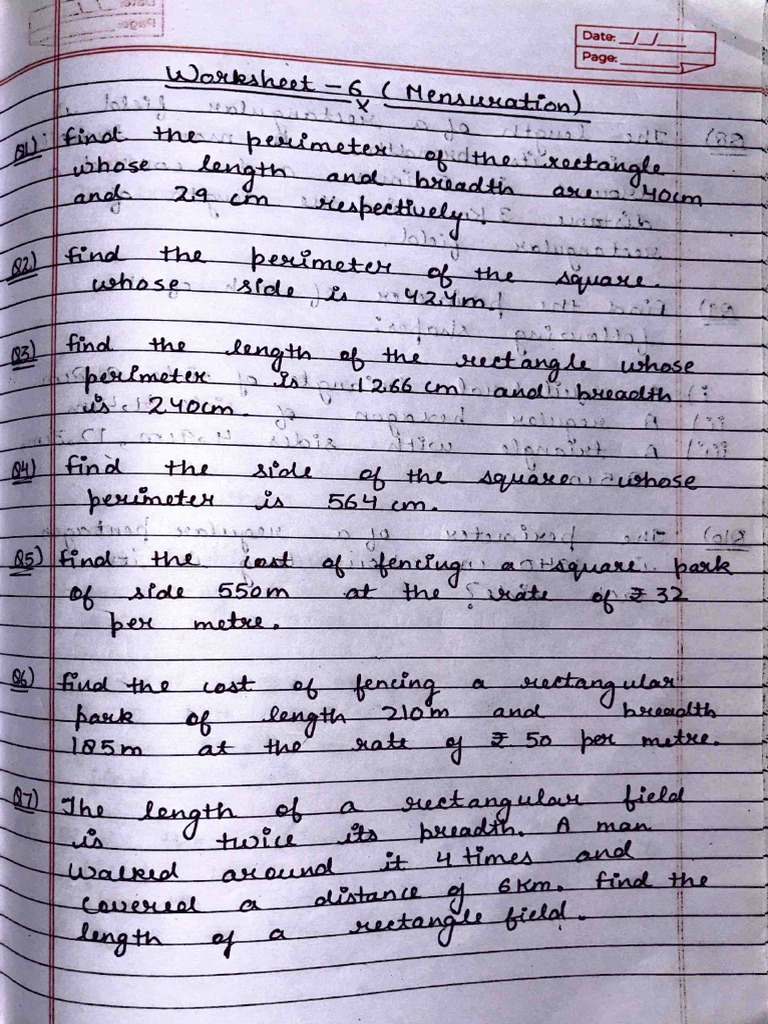 Date: __/__/____
Page:
Worksheet - 6 (Mensuration)
x
Q1) find the perimeter of the rectangle
whose length and breadth are 40cm
and 29 cm respectively
Q2) find the perimeter of the square.
whose side is 424m.
Q3) find the length of the rectangle whose
perimeter is 1266 cm and breadth
is 240cm.
Q4) find the side of the square whose
perimeter is 564 cm.
Q5) find the cost of fencing a square park
of side 550m at the rate of ₹ 32
per metre.
Q6) find the cost of fencing a rectangular
park of length 210m and breadth
185m at the rate of ₹ 50 per metre.
Q7) The length of a rectangular field
is twice its breadth. A man
walked around it 4 times and
covered a distance of 6km. find the
length of a rectangle field.